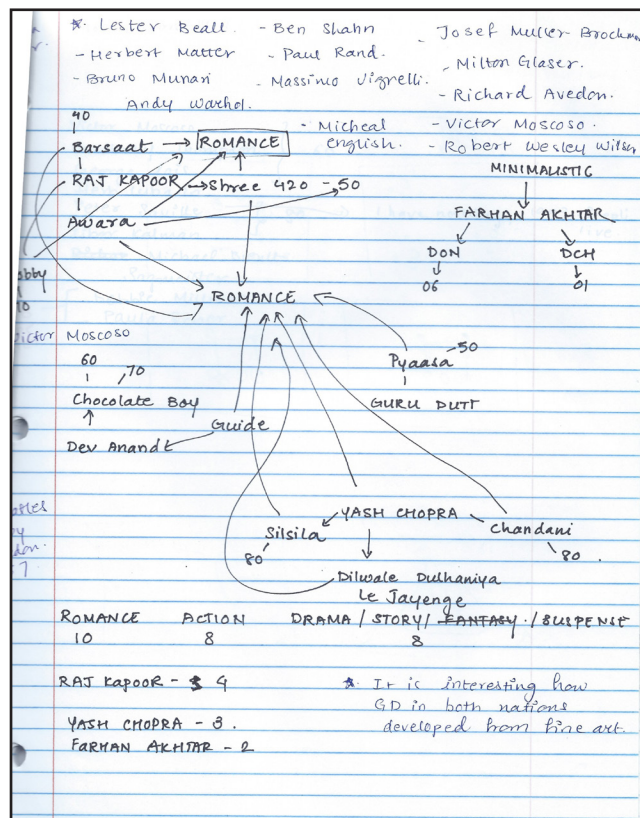 * Lester Beall - Ben Shahn - Josef Muller-Brockman
- Herbert Matter - Paul Rand. - Milton Glaser.
- Bruno Munari - Massimo Vignelli. - Richard Avedon.
Andy Warhol. - Micheal english. - Victor Moscoso.
- Robert Wesley Wilson
40
Barsaat → ROMANCE
RAJ KAPOOR → Shree 420 - 50
Awara
obby
70
MINIMALISTIC
FARHAN AKHTAR
DON DCH
06 01
ROMANCE
Victor Moscoso
60 70
Chocolate Boy
Dev Anandt
Guide
Pyaasa - 50
GURU DUTT
YASH CHOPRA
Silsila
80
Chandani
80
Dilwale Dulhaniya
Le Jayenge
ROMANCE ACTION DRAMA / STORY / FANTASY / SUSPENSE
10 8 8
RAJ KAPOOR - 4
YASH CHOPRA - 3.
FARHAN AKHTAR - 2
* It is interesting how
GD in both nations
developed from fine art.